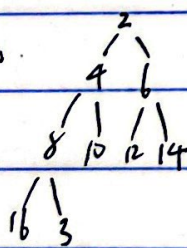 2
4 6
8 10 12 14
16 3